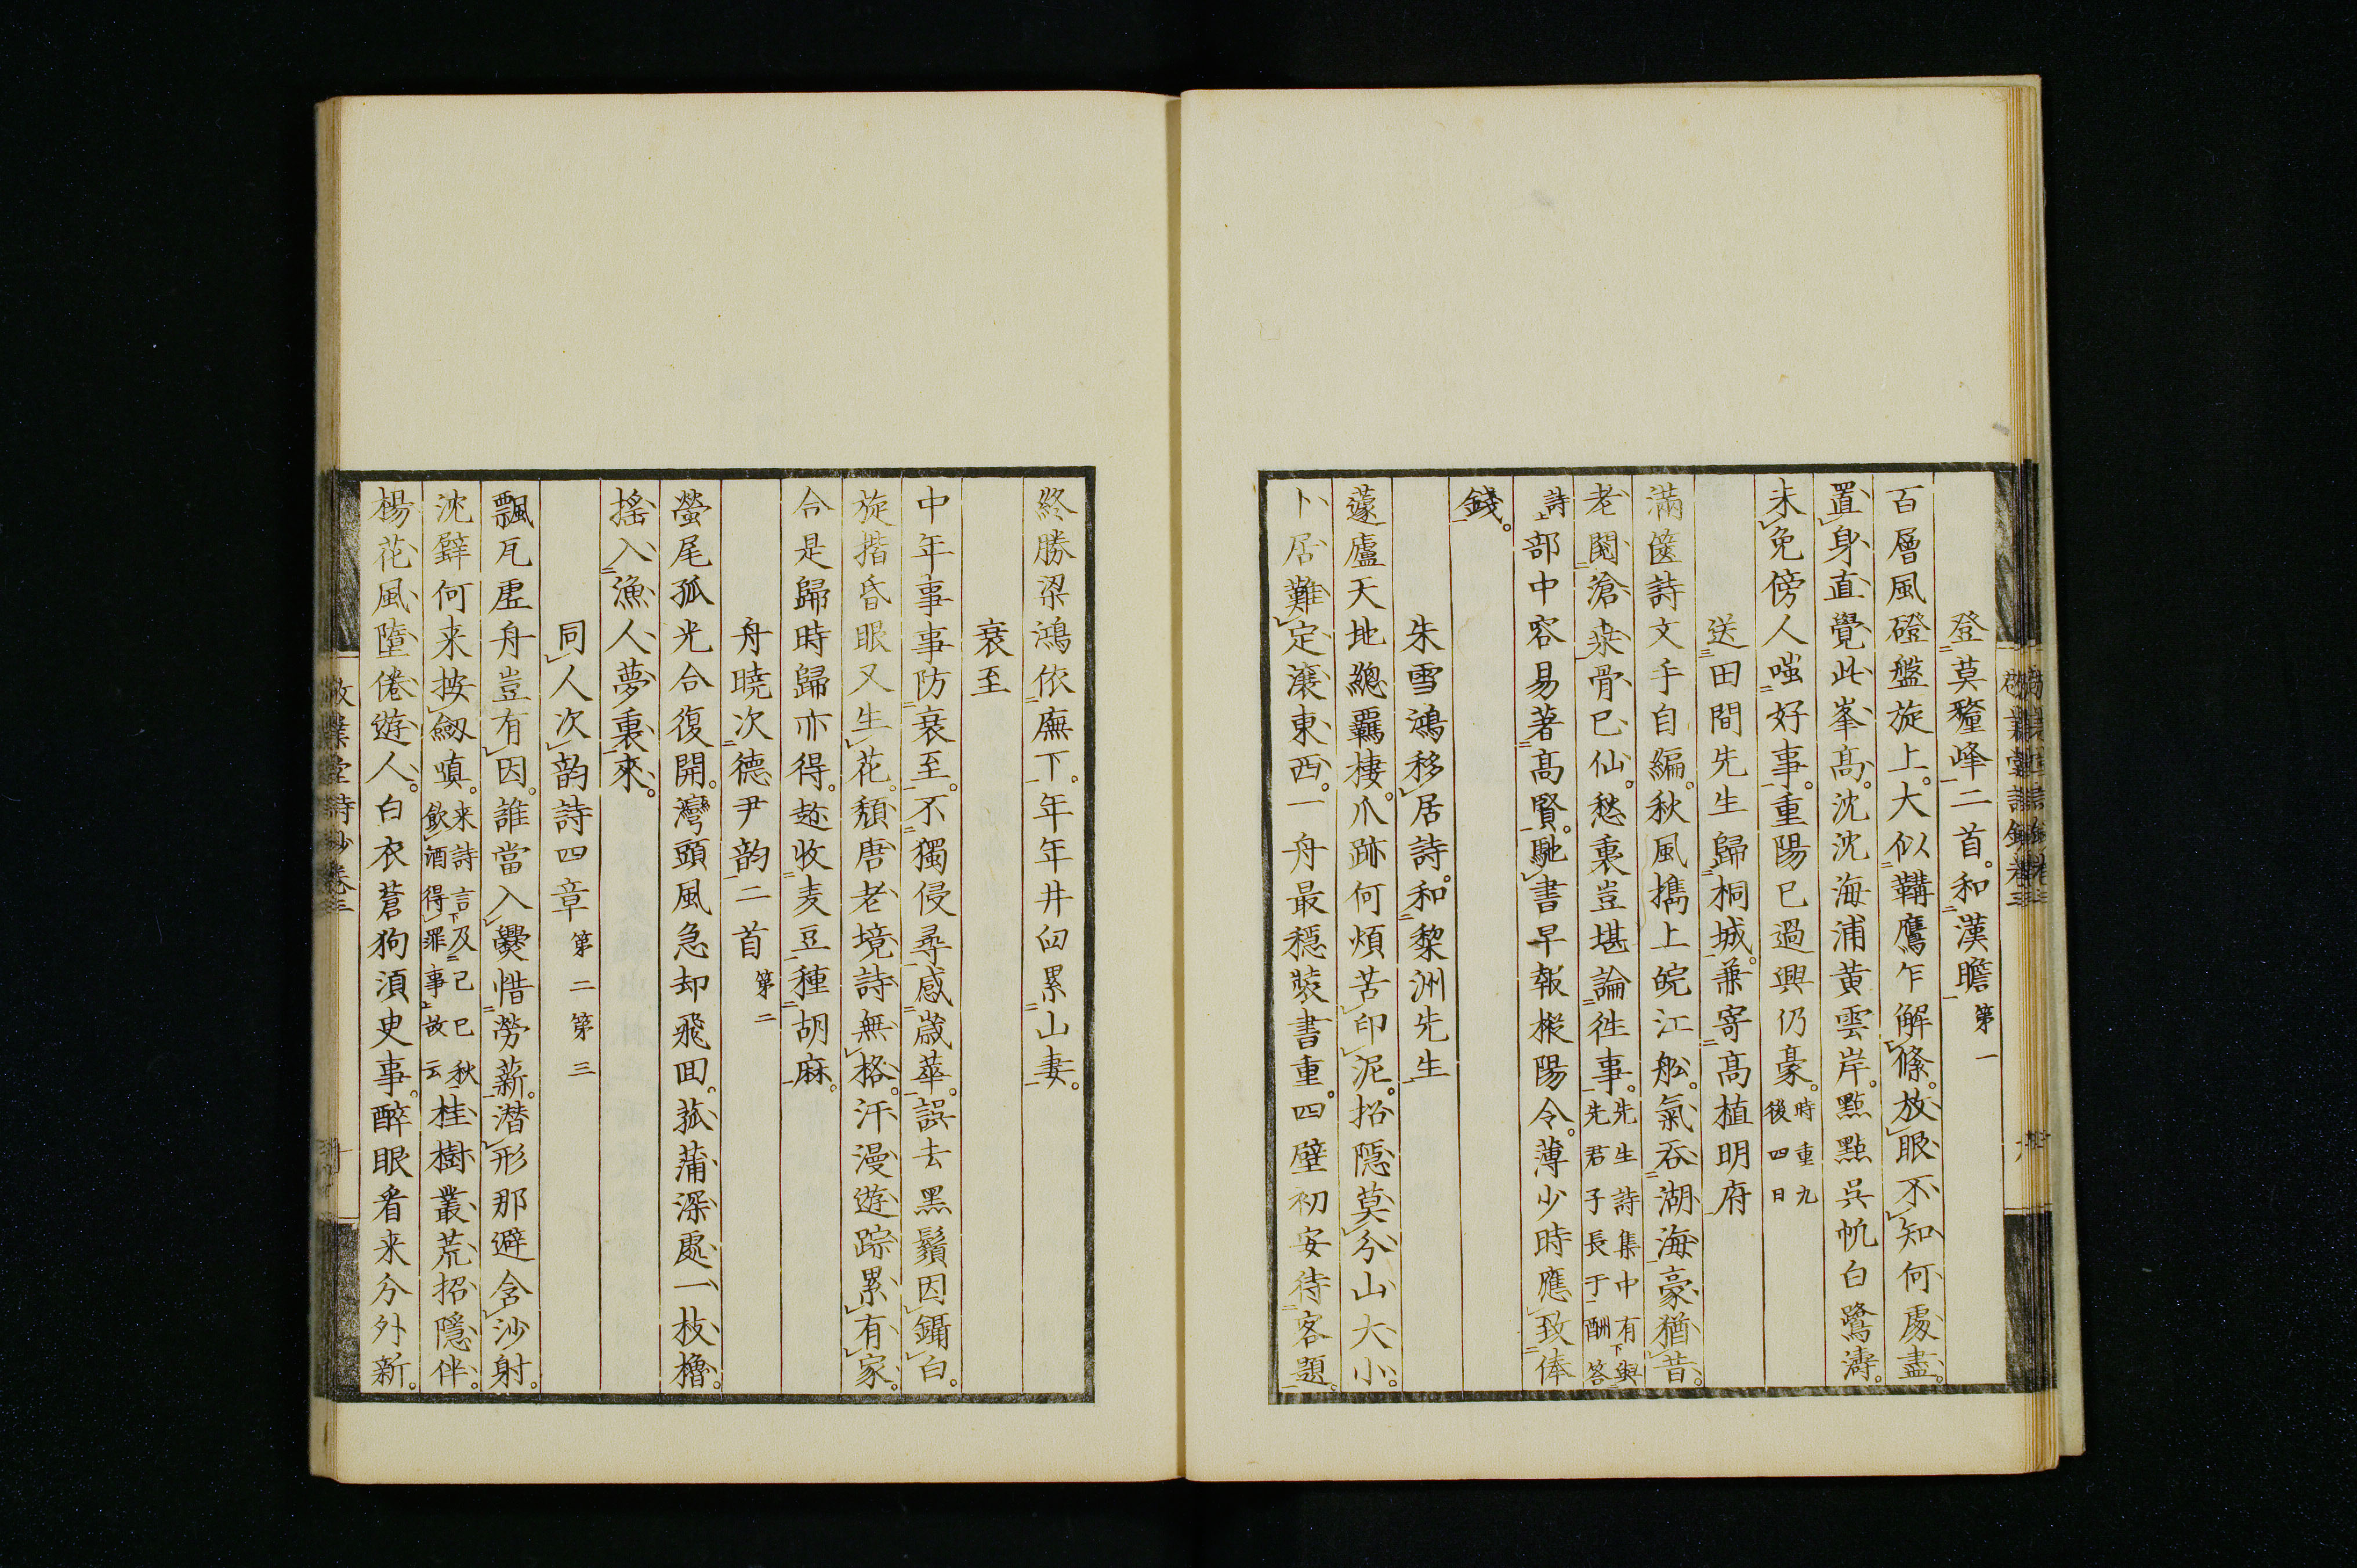 登莫釐峰二首。和漢瞻第一
百層風磴盤旋上。大似鞲鷹乍解絛。放眼不知何處盡。
置身直覺此峯高。沈沈海浦黄雲岸。點點呉帆白鷺濤。
未免傍人嗤好事。重陽已過興仍豪。時重九後四日
送田間先生歸桐城。兼寄高植明府
滿篋詩文手自編。秋風擕上皖江舩。氣吞湖海豪猶昔。
老閲滄桒骨已仙。愁裏豈堪論徃事。先生詩集中有與先君子長于酬答
詩部中容易著高賢。馳書早報樅陽令。薄少時應致俸
錢。
朱雪鴻移居詩。和黎洲先生
蘧廬天地總羈棲。爪跡何煩苦印泥。招隱莫分山大小。
卜居難定瀼東西。一舟最穏裝書重。四壁初安待客題。
終勝梁鴻依廡下。年年井臼累山妻。
衰至
中年事事防衰至。不獨侵尋感歳華。誤去黒鬚因鑷白。
旋揩昏眼又生花。頽唐老境詩無格。汗漫遊踪累有家。
合是歸時歸亦得。趂收麦豆種胡麻。
舟曉次德尹韵二首第二
螢尾孤光合復開。灣頭風急却飛囬。菰蒲深處一枝櫓。
搖入漁人夢裏來。
同人次韵詩四章第二第三
飄瓦虚舟豈有因。誰當入爨惜勞薪。潜形那避含沙射。
沈辥何来按劔嗔。来詩言及己巳秋飲酒得罪事故云桂樹叢荒招隱伴。
楊花風墮倦遊人。白衣蒼狗湏臾事。醉眼看来分外新。
敬業堂詩鈔卷三
十